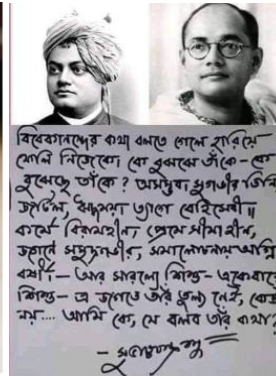 বিবেকানন্দের কথা বলতে গেলে হারিয়ে
ফেলি নিজেকে। কে বুঝবে তাঁকে - কে
বুঝেছে তাঁকে? অসম্ভব সুগভীর তিনি
জটিল, ঋদ্ধময় ত্যাগে বেহিসেবী।
কর্মে বিরামহীন, প্রেমে সীমাহীন,
জ্ঞানে সমুদ্রগভীর, সমালোচনায় অগ্নি
বর্ষী। - আর সারল্যে শিশু - একেবারে
শিশু - এ জগতে তাঁর তুল্য নেই, কেউ
নয়.... আমি কে, যে বলব তাঁর কথা?
- সুভাষচন্দ্র বসু